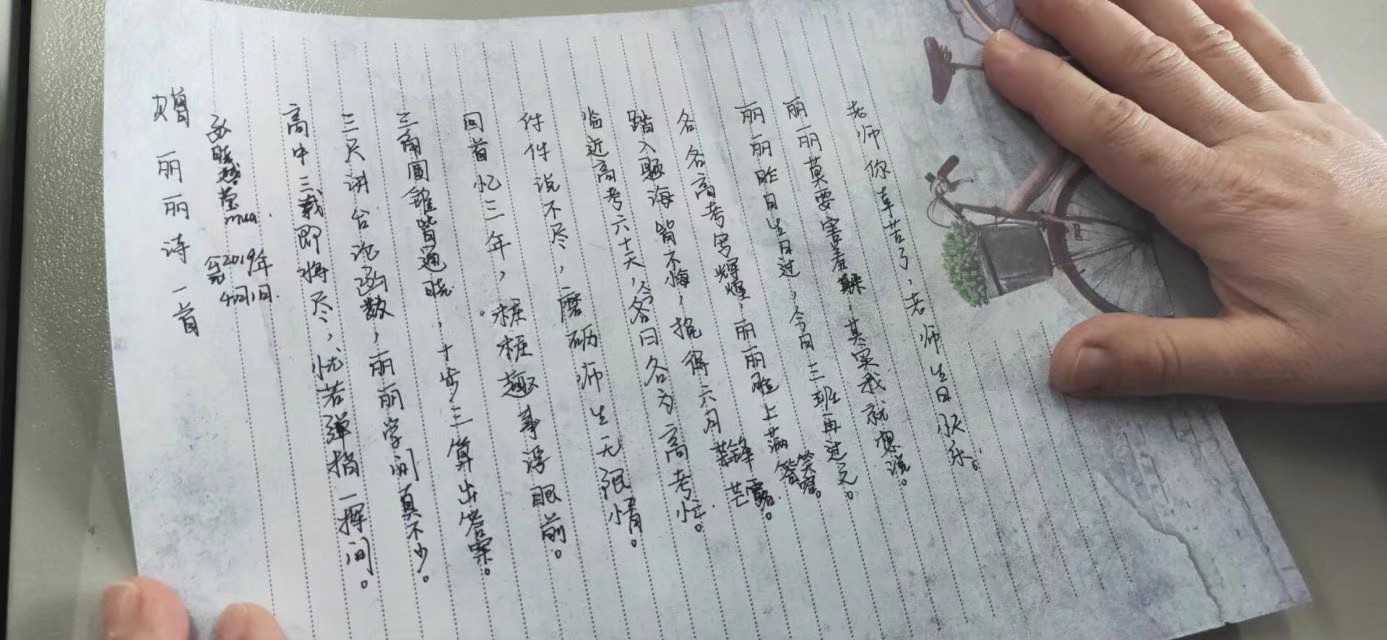 赠丽丽诗一首
mua.
公元2019年
4月1日.
高中三载即将尽,恍若弹指一挥间。
三尺讲台论函数,丽丽学问真不少。
三角圆锥皆通晓,十步三算出答案。
回首忆三年,桩桩趣事浮眼前。
件件说不尽,磨砺师生无限情。
临近高考六十天,今日各为高考忙。
踏入题海皆不悔,换得六月锋芒露。
各各高考写辉煌,丽丽脸上满笑容。
丽丽昨日生日过,今日三班再过元。
丽丽莫要害羞躲,其实我就想说。
老师你辛苦了,老师生日快乐。